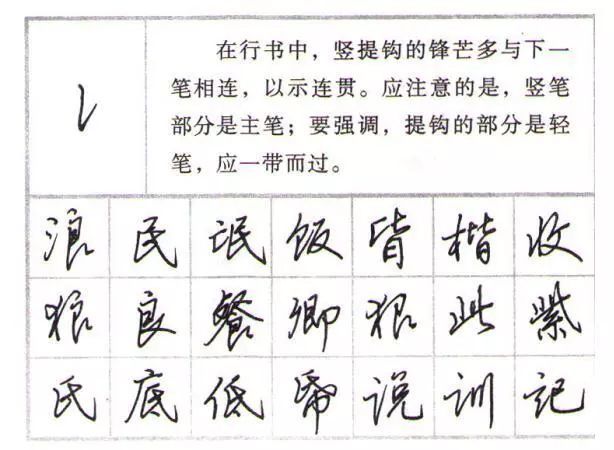 在行书中，竖提钩的锋芒多与下一
笔相连，以示连贯。应注意的是，竖笔
部分是主笔；要强调，提钩的部分是轻
笔，应一带而过。
浪 民 泯 饭 皆 楷 收
狼 良 餐 卿 狠 此 紫
氏 底 低 说 训 记